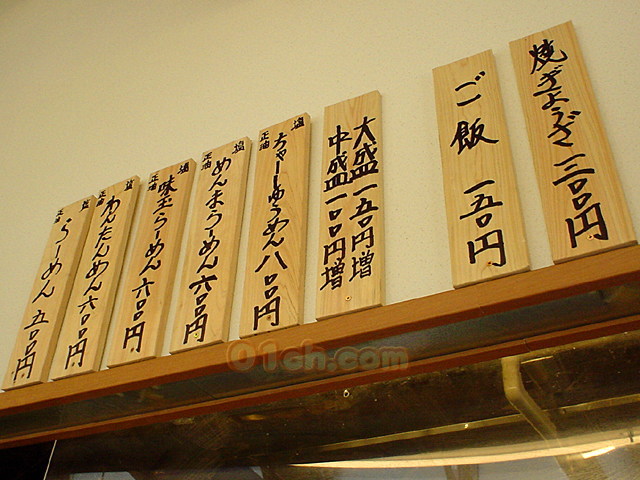 焼ぎょうざ 三〇〇円
ご飯 一五〇円
大盛一五〇円増
中盛一〇〇円増
塩
正油
ちゃーしゅうめん 八〇〇円
塩
正油
めんまらーめん 六〇〇円
塩
正油
味玉らーめん 六〇〇円
塩
正油
わんたんめん 六〇〇円
塩
正油
らーめん 五〇〇円
01ch.com